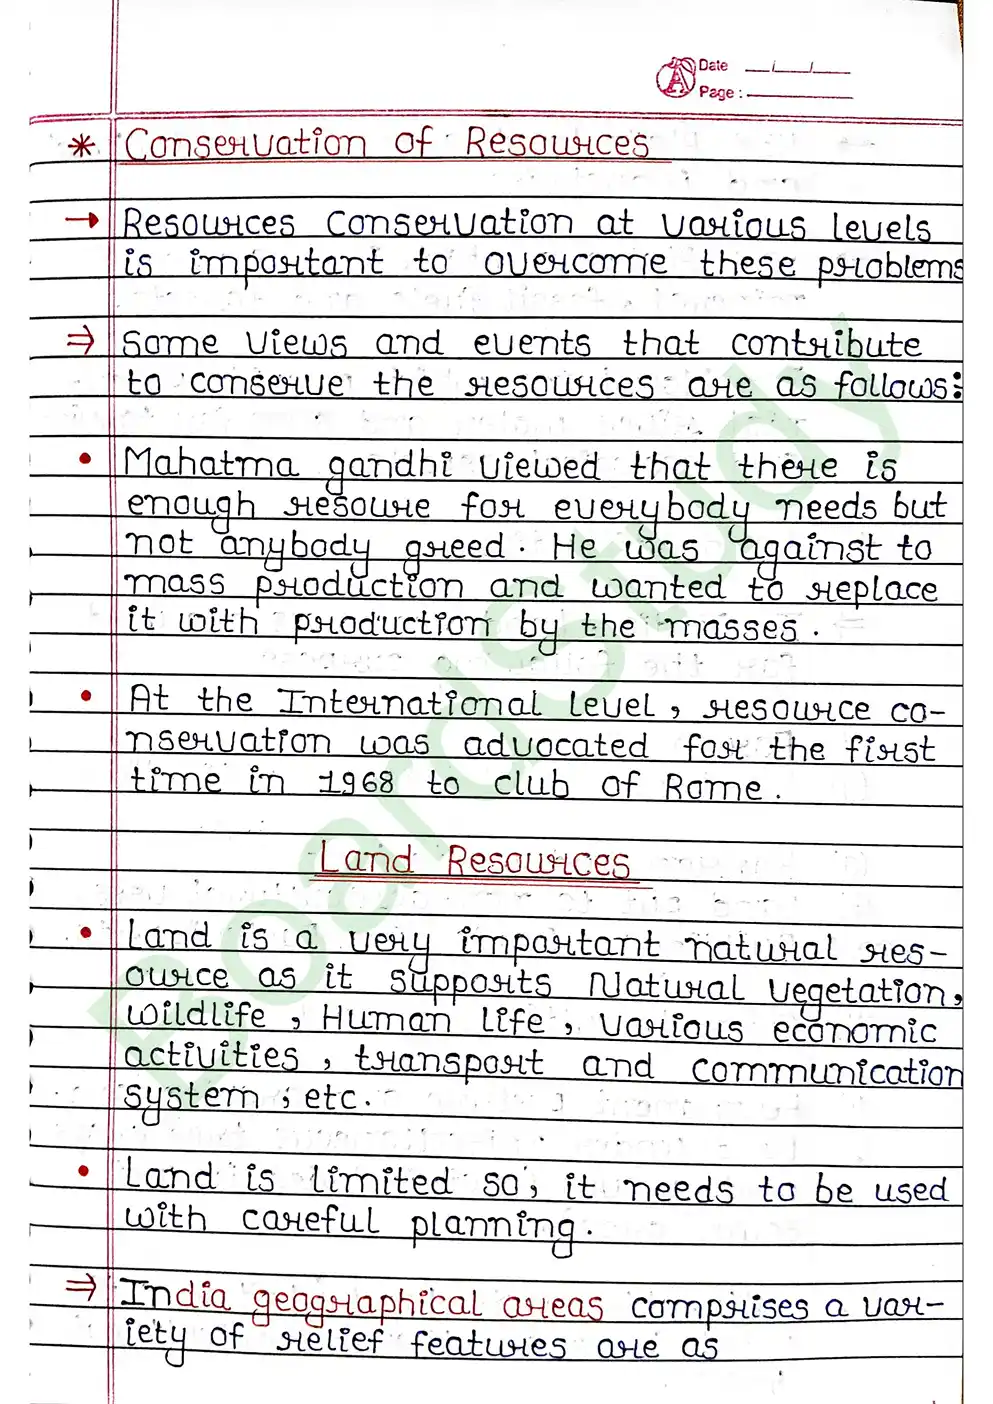 Date __/__/__
Page :
* Conservation of Resources
→ Resources Conservation at various levels
is important to overcome these problems
⇒ Some views and events that contribute
to conserve the resources are as follows:
• Mahatma gandhi viewed that there is
enough resoure for everybody needs but
not anybody greed. He was against to
mass production and wanted to replace
it with production by the masses.
• At the International level, resource co-
nservation was advocated for the first
time in 1968 to club of Rome.
Land Resources
• Land is a very important natural res-
ource as it supports Natural vegetation,
wildlife, Human life, various economic
activities, transport and communication
system, etc.
• Land is limited so, it needs to be used
with careful planning.
⇒ India geographical areas comprises a var-
iety of relief features are as
BoardStudy